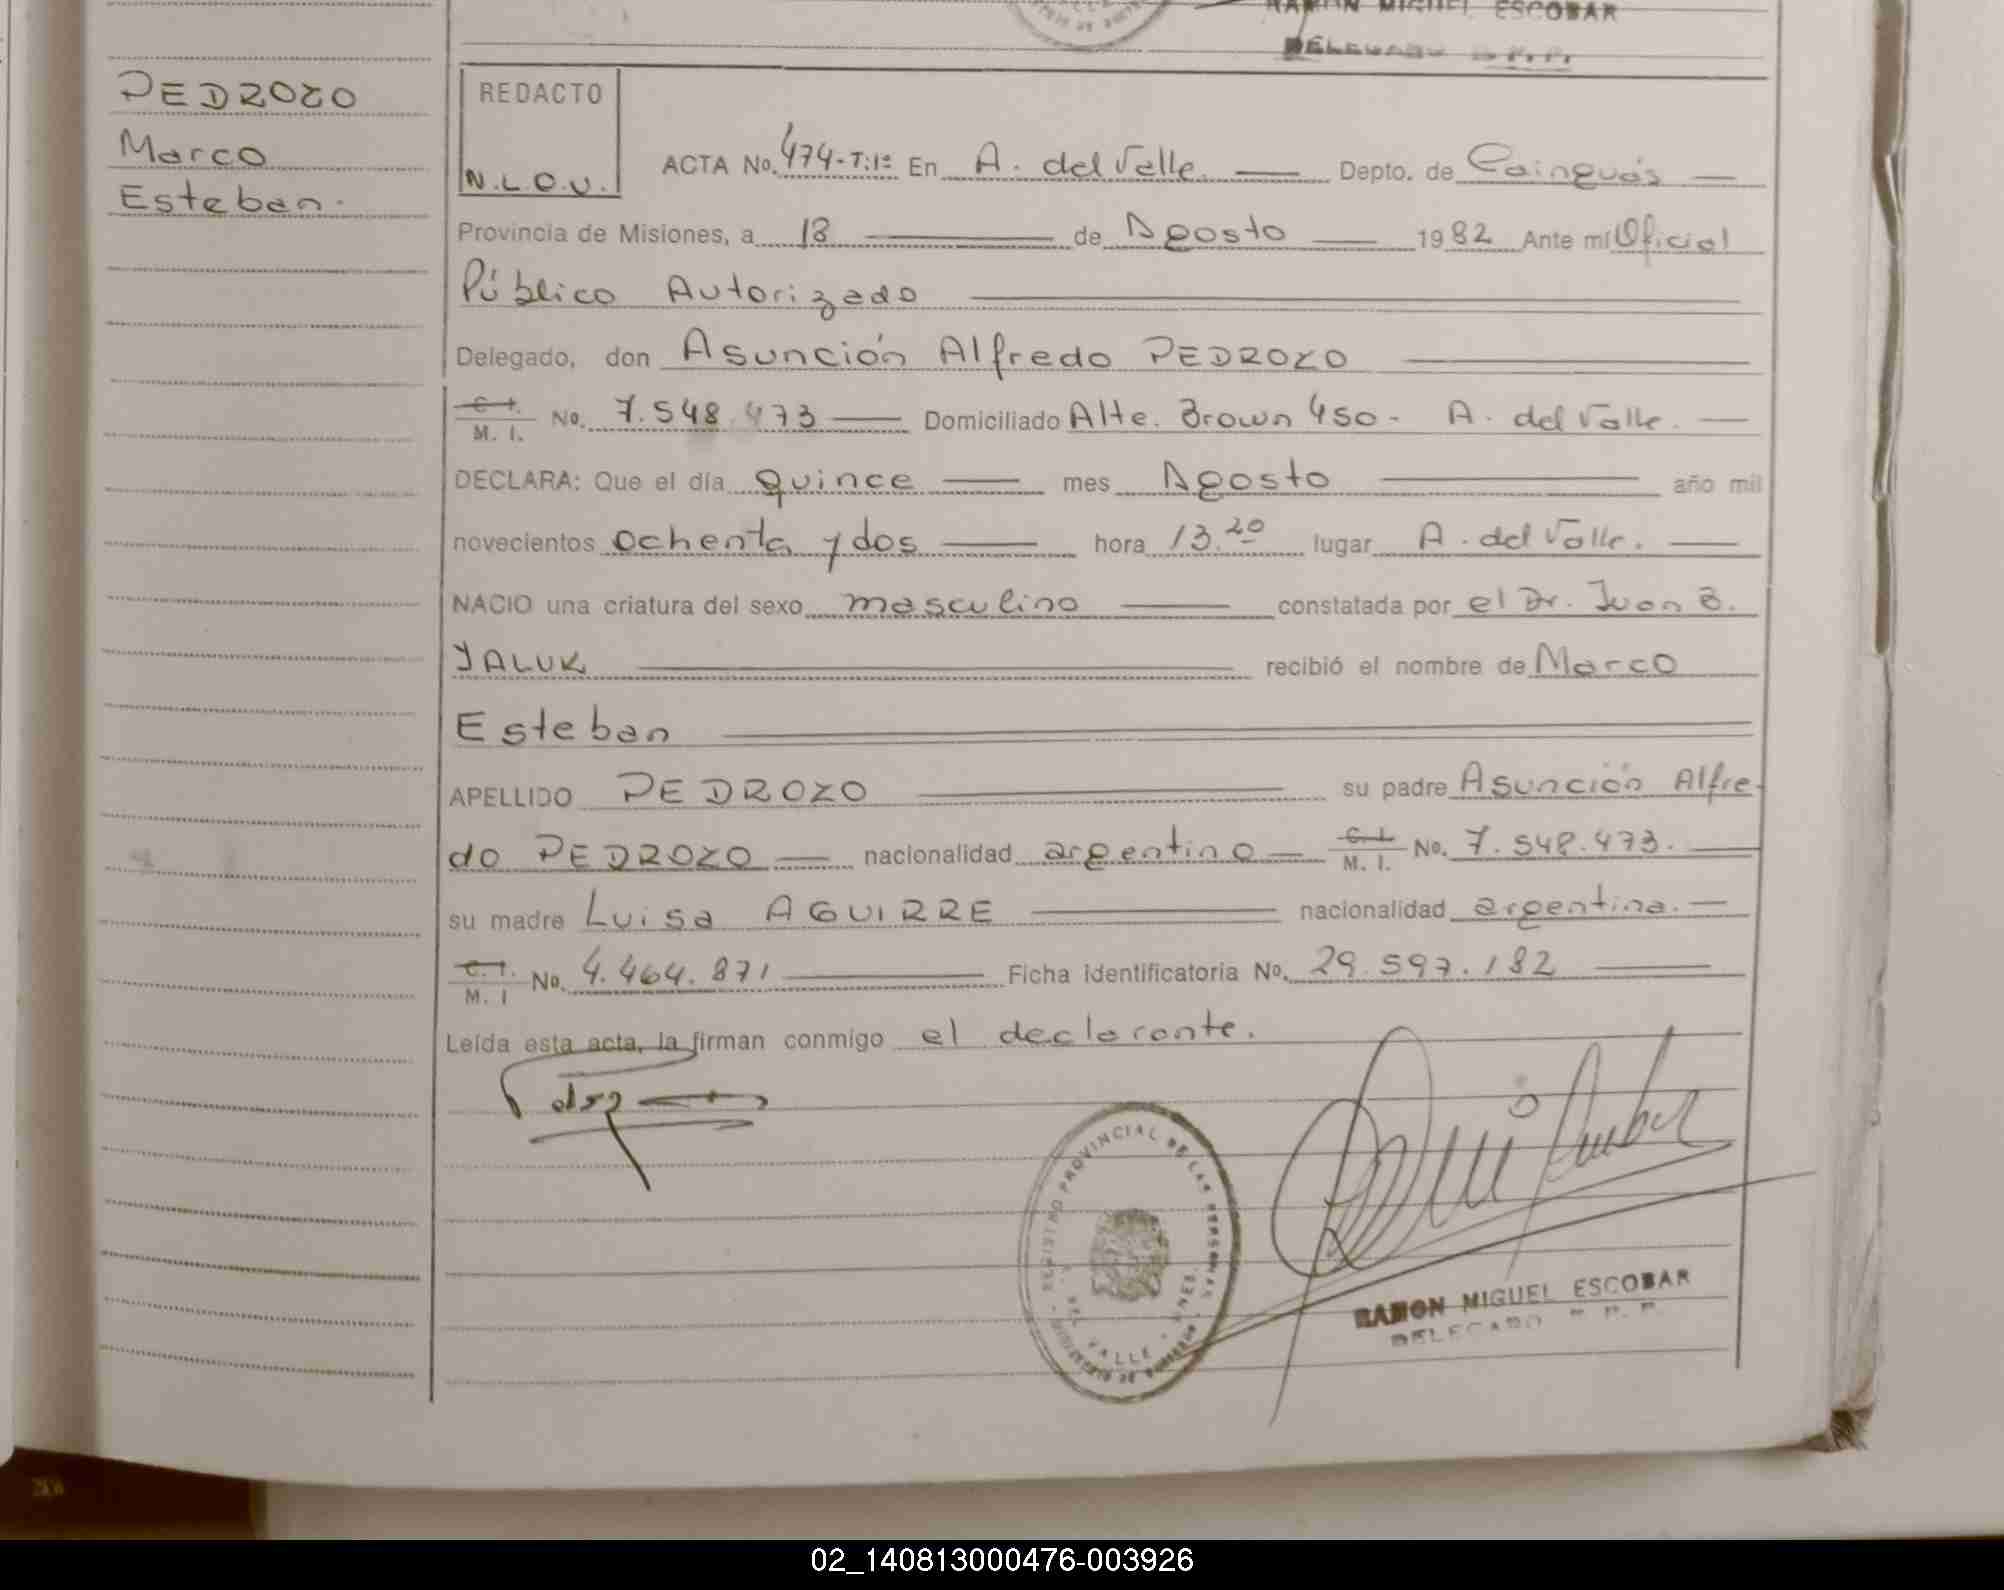 RAMON MIGUEL ESCOBAR
DELEGADO R.P.P.
PEDROZO
Marco
Esteban.
REDACTO
N.L.O.V.
ACTA No. 474-T:1º En A. del Valle. Depto. de Cainguás
Provincia de Misiones, a 18 de Agosto 1982 Ante mí Oficial
Público Autorizado
Delegado, don Asunción Alfredo PEDROZO
C. I. M. I. No. 7.548.473 Domiciliado Alte. Brown 450- A. del Valle.
DECLARA: Que el día quince mes Agosto año mil
novecientos ochenta y dos hora 13.20 lugar A. del Valle.
NACIO una criatura del sexo masculino constatada por el Dr. Juan B.
YALUK recibió el nombre de Marco
Esteban
APELLIDO PEDROZO su padre Asunción Alfre-
do PEDROZO nacionalidad argentino C. I. M. I. No. 7.548.473.
su madre Luisa AGUIRRE nacionalidad argentina.
C. I. M. I No. 4.464.871 Ficha identificatoria No. 29.597.182
Leída esta acta, la firman conmigo el declarante.
REGISTRO PROVINCIAL DE LAS PERSONAS
DEL VALLE
RAMON MIGUEL ESCOBAR
DELEGADO R. P. P.
02_140813000476-003926